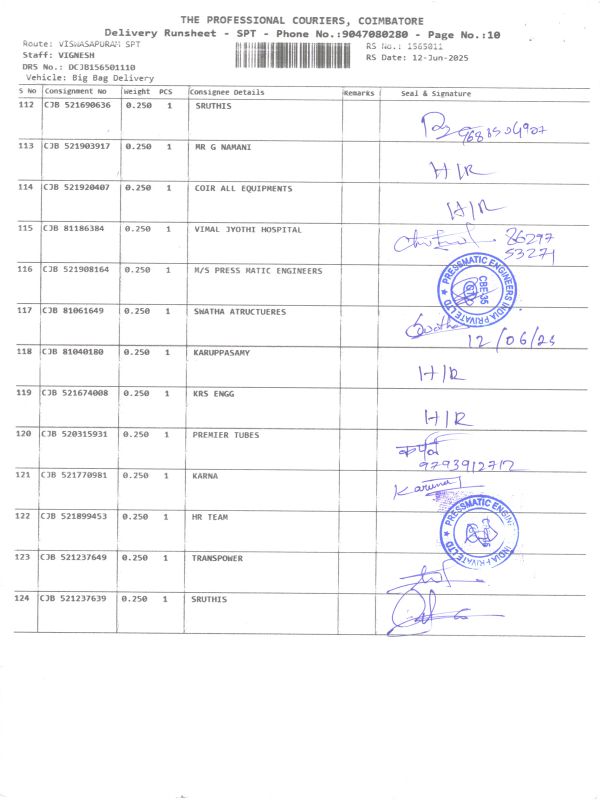 THE PROFESSIONAL COURIERS, COIMBATORE
Delivery Runsheet - SPT - Phone No.:9047080280 - Page No.:10
Route: VISWASAPURAM SPT
RS No.: 1565011
Staff: VIGNESH
RS Date: 12-Jun-2025
DRS No.: DCJB156501110
Vehicle: Big Bag Delivery
S No Consignment No Weight PCS Consignee Details Remarks Seal & Signature
112 CJB 521690636 0.250 1 SRUTHIS
113 CJB 521903917 0.250 1 MR G NAMANI H/R
114 CJB 521920407 0.250 1 COIR ALL EQUIPMENTS H/R
115 CJB 81186384 0.250 1 VIMAL JYOTHI HOSPITAL 86297
53271
116 CJB 521908164 0.250 1 M/S PRESS MATIC ENGINEERS PRESSMATIC ENGINEERS INDIA PRIVATE LTD CBE-35
117 CJB 81061649 0.250 1 SWATHA ATRUCTUERES Swatha
12/06/25
118 CJB 81040180 0.250 1 KARUPPASAMY H/R
119 CJB 521674008 0.250 1 KRS ENGG H/R
120 CJB 520315931 0.250 1 PREMIER TUBES
9793912712
121 CJB 521770981 0.250 1 KARNA Karuna
122 CJB 521899453 0.250 1 HR TEAM PRESSMATIC ENGINE INDIA PRIVATE LTD
123 CJB 521237649 0.250 1 TRANSPOWER
124 CJB 521237639 0.250 1 SRUTHIS